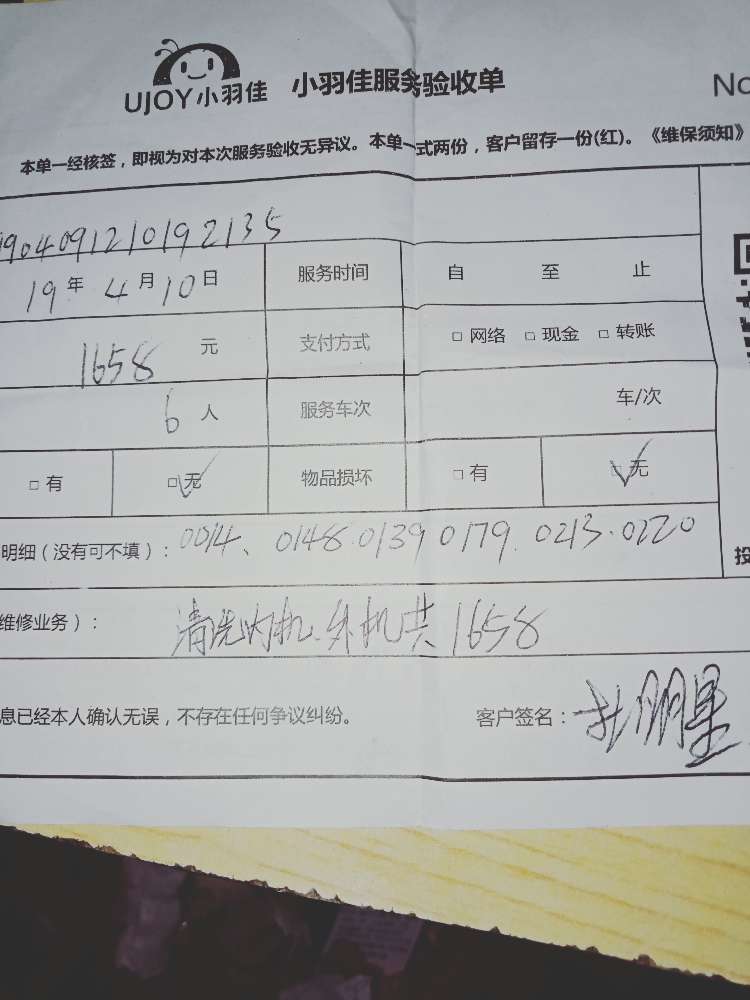 UJOY小羽佳 小羽佳服务验收单 No
本单一经核签，即视为对本次服务验收无异议。本单一式两份，客户留存一份(红)。《维保须知》
1904091210192135
19年 4月10日 服务时间 自 至 止
1658 元 支付方式 □ 网络 □ 现金 □ 转账
6 人 服务车次 车/次
□ 有 □ 无 物品损坏 □ 有 □ 无
明细（没有可不填）：0014、0148.0139 0179.0213.0220
投
维修业务）：清洗内机、外机共1658
息已经本人确认无误，不存在任何争议纠纷。 客户签名：杜朋星